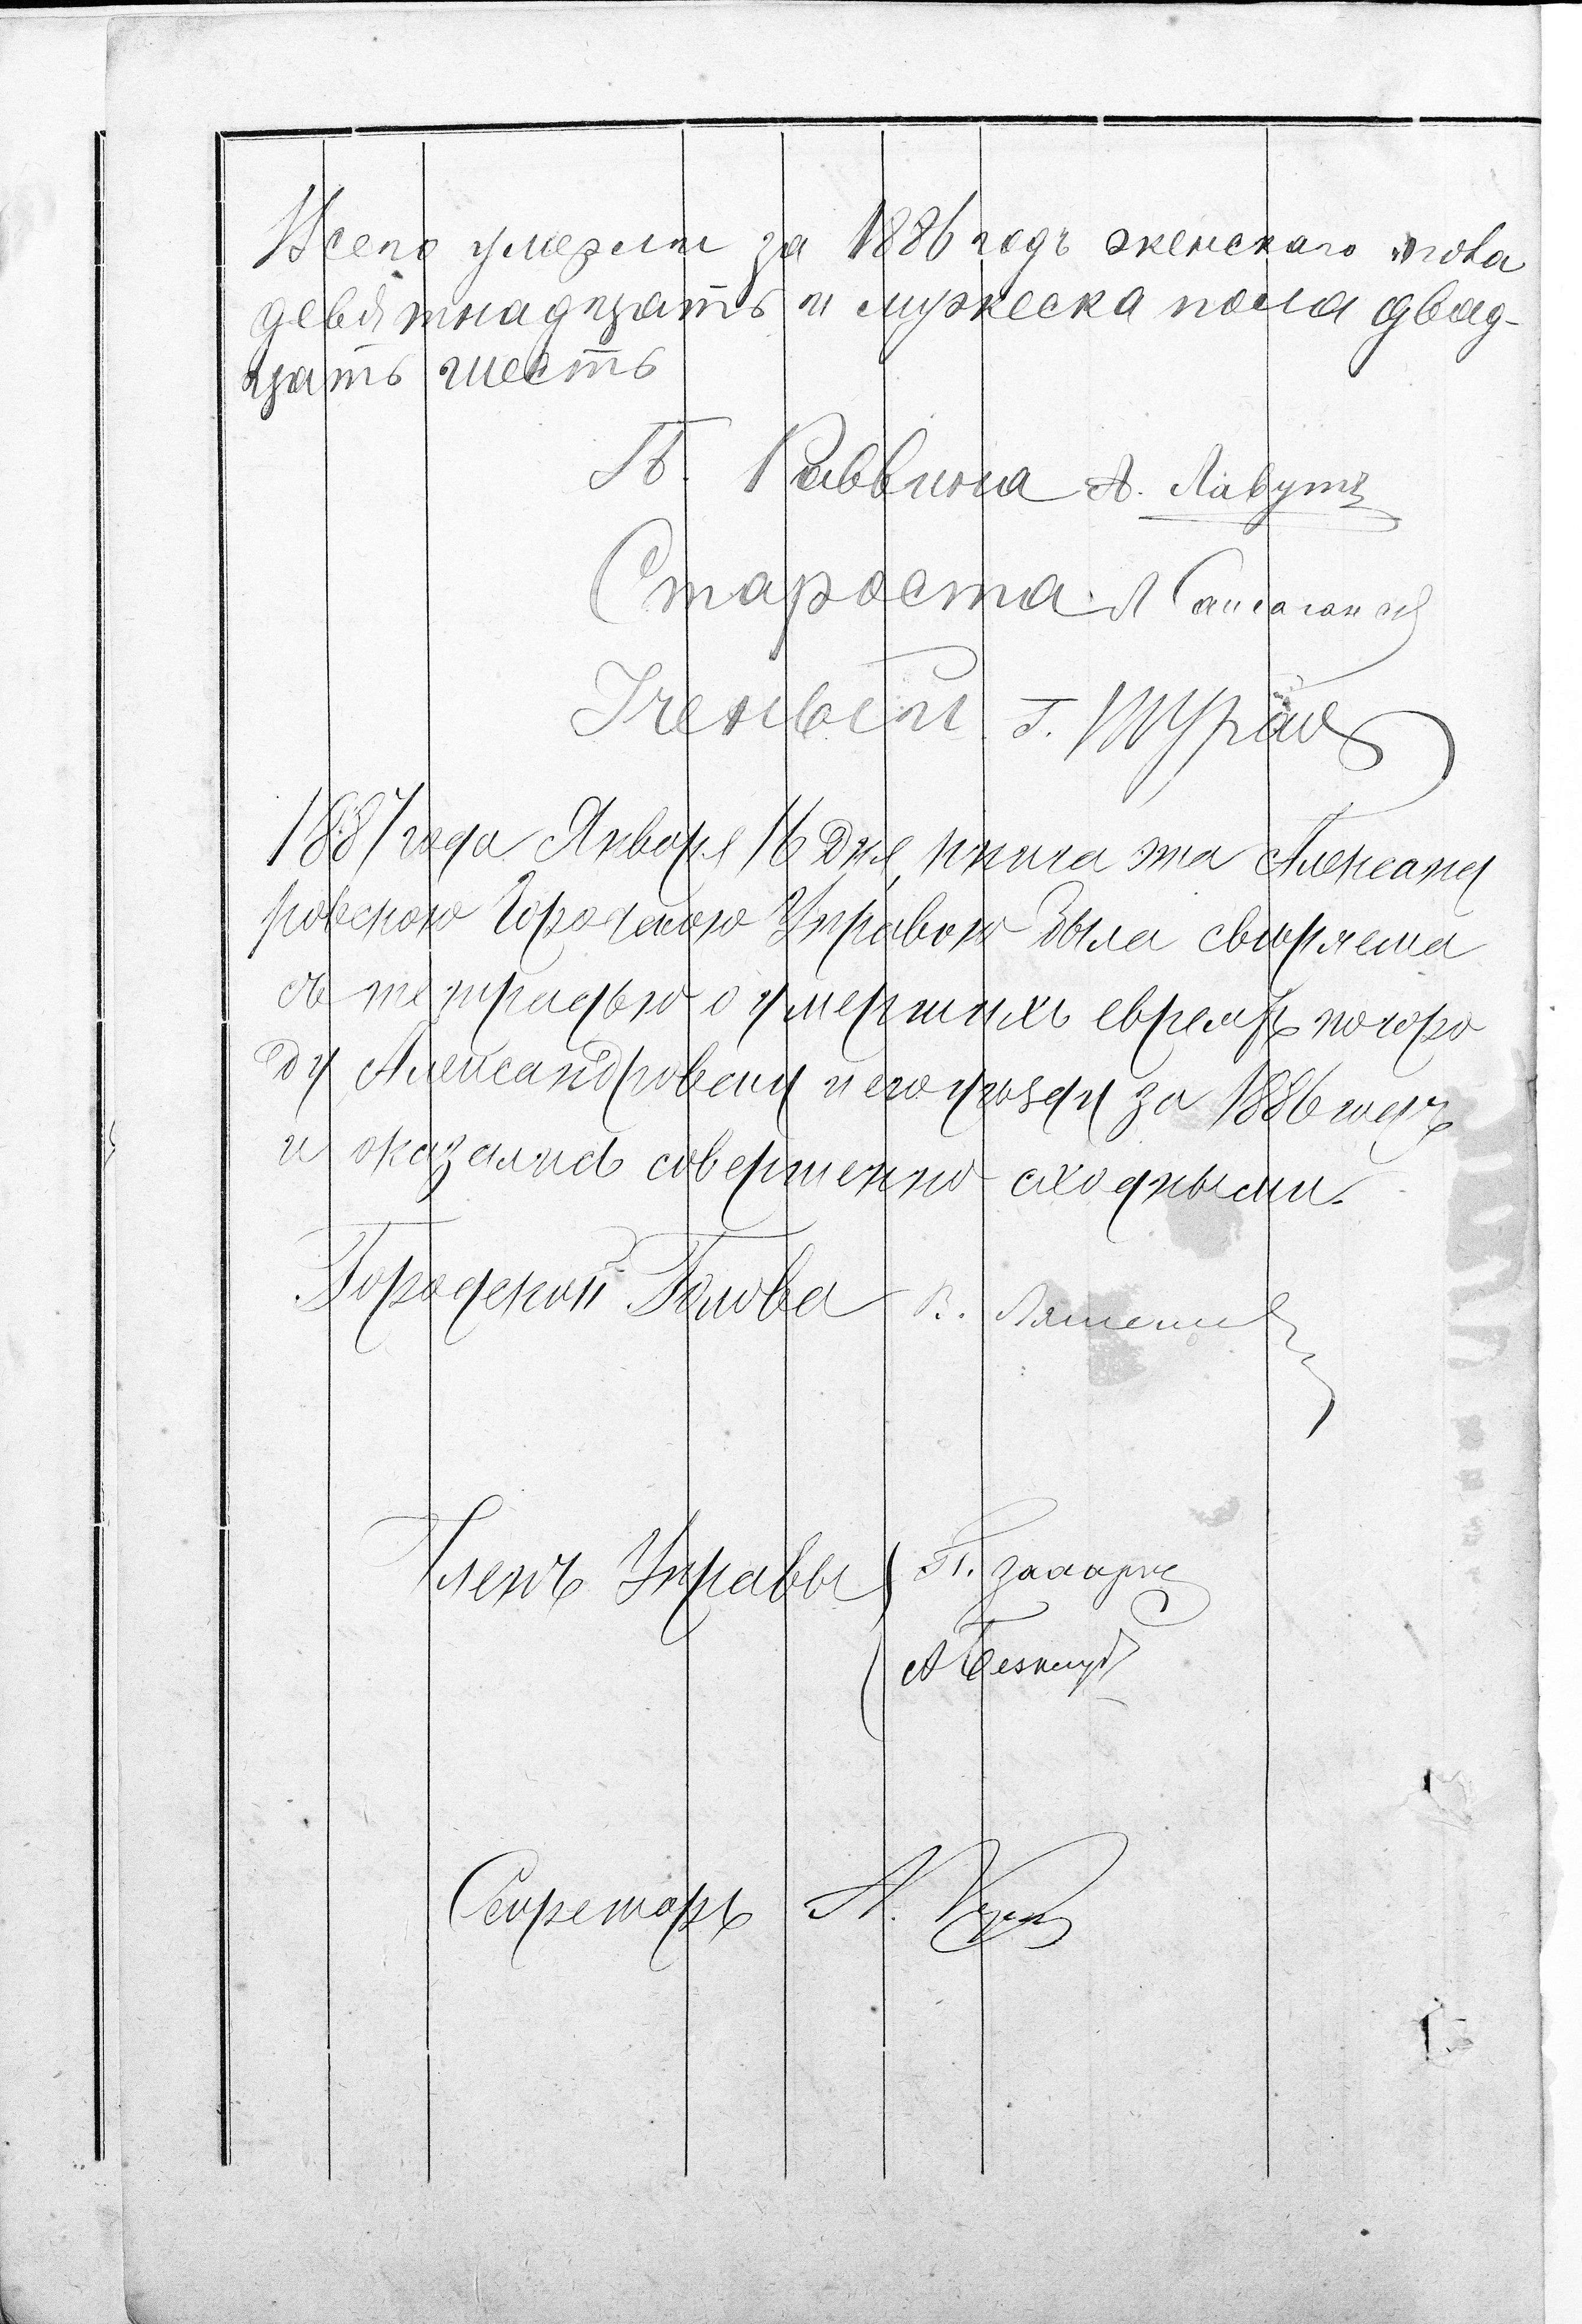 Всего умерли за 1886 годъ женскаго пола
девятнадцать и мужеска пола двад-
цать шесть
П. Раввина А. Лавутъ
Староста Л
Ученый Г.
1887 года Января 16 дня, книга эта Александ
ровскою Городскою Управою была сверяема
съ тетрадью о умершихъ евреяхъ по горо
ду Александровску и его уезду за 1886 годъ
и оказались совершенно сходными.
Городской Голова В.
Членъ Управы П. Захарин
А
Секретарь А.